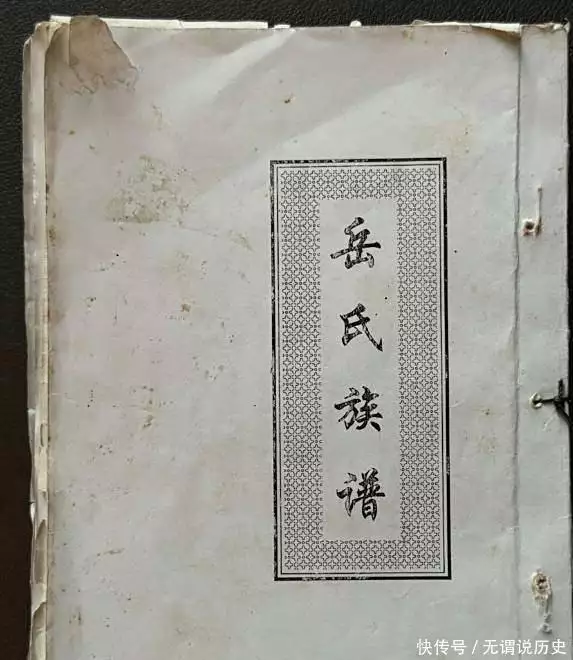 岳氏族谱
快传号／无谓说历史